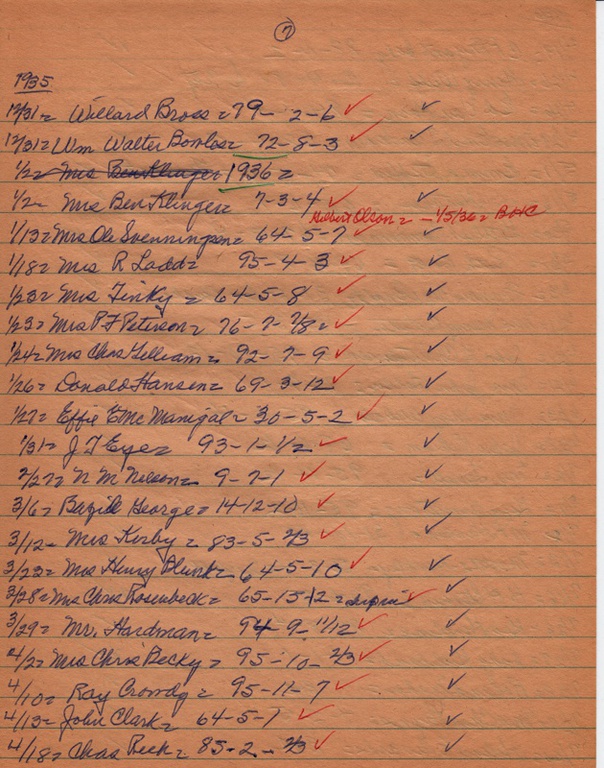 7
1935
12/31= Willard Bross = 79- 2-6 ✓ ✓
12/31= Wm Walter Bowles= 72-8-3 ✓ ✓
1/2= Mrs Ben Klinger 1936=
1/2= Mrs Ben Klinger= 7-3-4 ✓ ✓
Olson= -1/5/36= BHC
1/13= Mrs Ole Svenningsen= 64-5-7 ✓ ✓
1/18= Mrs R Ladd= 95-4-3 ✓ ✓
1/23= Mrs Tinky = 64-5-8 ✓ ✓
1/23= Mrs P F Peterson= 76-7-7/8= ✓ ✓
1/24= Mrs Chas Gilliam= 92-7-9 ✓ ✓
1/26= Donald Hansen= 69-3-12 ✓ ✓
1/27= Effie E McManigal= 30-5-2 ✓ ✓
1/31= J T Eye= 93-1-1/2 ✓ ✓
2/27= N M Nelson= 9-7-1 ✓ ✓
3/6= George= 14-12-10 ✓ ✓
3/12= Mrs Kirby= 83-5-2/3 ✓ ✓
3/23= Mrs Henry Blunk= 64-5-10 ✓ ✓
3/28= Mrs Chris Rosenbeck= 65-15+2= ✓ ✓
3/29= Mr. Hardman= 94-9-11/12 ✓ ✓
4/2= Mrs Chris Becky= 95-10-2/3 ✓ ✓
4/10= Ray Crowdy= 95-11-7 ✓ ✓
4/13= John Clark= 64-5-1 ✓ ✓
4/18= Chas Beek= 85-2-2/3 ✓ ✓